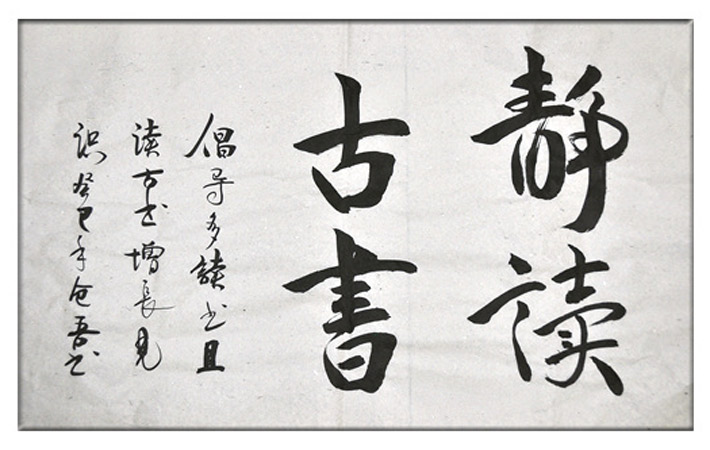 静读
古書
倡导多读书且
读古书增长见
识癸巳年仓吾书